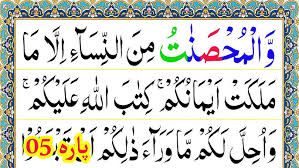 وَّالْمُحْصَنٰتُ مِنَ النِّسَآءِ اِلَّا مَا
مَلَكَتْ اَيْمَانُكُمْ ۚ كِتٰبَ اللّٰهِ عَلَيْكُمْ ۚ
وَاُحِلَّ لَكُمْ مَّا وَرَآءَ ذٰلِكُمْ
پارہ 05